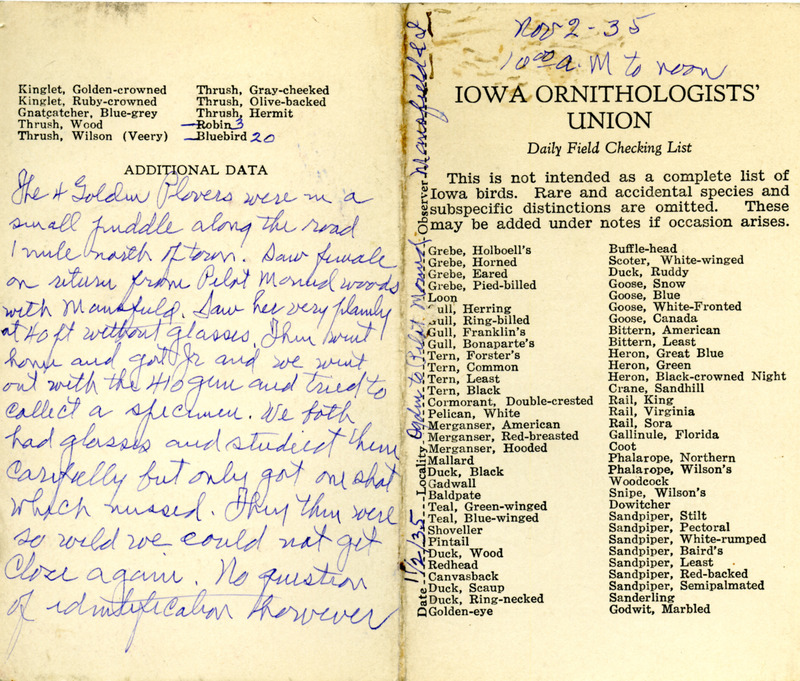 Kinglet, Golden-crowned
Kinglet, Ruby-crowned
Gnatcatcher, Blue-grey
Thrush, Wood
Thrush, Wilson (Veery)
Thrush, Gray-cheeked
Thrush, Olive-backed
Thrush, Hermit
Robin 3
Bluebird 20
ADDITIONAL DATA
The 4 Golden Plovers were in a
small puddle along the road
1 mile north of town. Saw female
on return from Pilot Mound woods
with Mansfield. Saw her very plainly
at 40 ft without glasses. Then went
home and got Jr and we went
out with the 410 gun and tried to
collect a specimen. We both
had glasses and studied them
carefully but only got one shot
which missed. They then were
so wild we could not get
close again. No question
of identification however
Date 11/2/35 Locality Ogden to Pilot Mound Observer Mansfield &
Nov 2-35
10:00 a.M to noon
IOWA ORNITHOLOGISTS'
UNION
Daily Field Checking List
This is not intended as a complete list of
Iowa birds. Rare and accidental species and
subspecific distinctions are omitted. These
may be added under notes if occasion arises.
Grebe, Holboell's
Grebe, Horned
Grebe, Eared
Grebe, Pied-billed
Loon
Gull, Herring
Gull, Ring-billed
Gull, Franklin's
Gull, Bonaparte's
Tern, Forster's
Tern, Common
Tern, Least
Tern, Black
Cormorant, Double-crested
Pelican, White
Merganser, American
Merganser, Red-breasted
Merganser, Hooded
Mallard
Duck, Black
Gadwall
Baldpate
Teal, Green-winged
Teal, Blue-winged
Shoveller
Pintail
Duck, Wood
Redhead
Canvasback
Duck, Scaup
Duck, Ring-necked
Golden-eye
Buffle-head
Scoter, White-winged
Duck, Ruddy
Goose, Snow
Goose, Blue
Goose, White-Fronted
Goose, Canada
Bittern, American
Bittern, Least
Heron, Great Blue
Heron, Green
Heron, Black-crowned Night
Crane, Sandhill
Rail, King
Rail, Virginia
Rail, Sora
Gallinule, Florida
Coot
Phalarope, Northern
Phalarope, Wilson's
Woodcock
Snipe, Wilson's
Dowitcher
Sandpiper, Stilt
Sandpiper, Pectoral
Sandpiper, White-rumped
Sandpiper, Baird's
Sandpiper, Least
Sandpiper, Red-backed
Sandpiper, Semipalmated
Sanderling
Godwit, Marbled